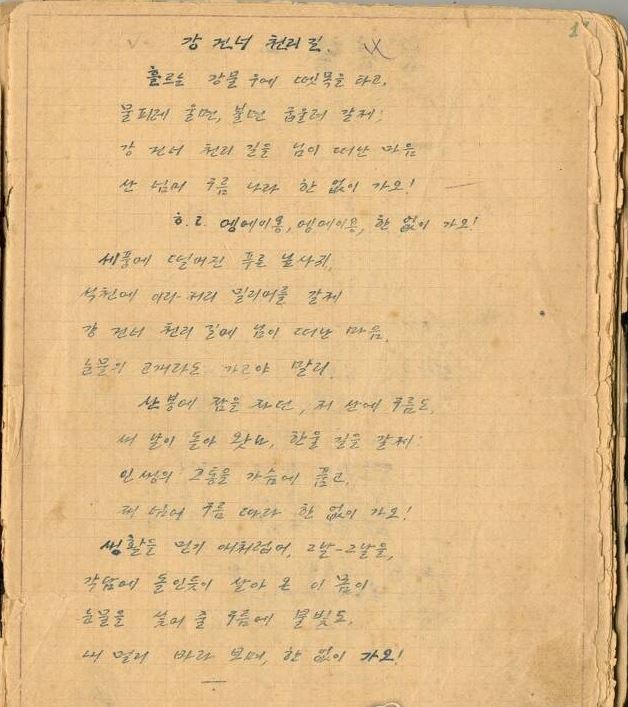 1
강 건너 천리 길.
흘르는 강물 우에 뗏목을 타고,
물피레 울면, 불면 굽울러 갈제;
강 건너 천리 길을 님이 떠난 마음
산 넘머 구름 나라 한 없이 가오!
후.렴. 엥에이용, 엥에이용, 한 없이 가오!
세풍에 떨머진 푸른 닢사귀,
석천에 이리-저리 밀리머를 갈제
강 건너 천리 길에 님이 떠난 마음,
눈물의 고개라도 가고야 말리
산봉에 잠을 자던, 저 산에 구름도,
새 날이 돌아 왓다, 한울 길을 갈제:
인생의 고통을 가슴에 품고,
넘어 구름 따라 한 없이 가오!
생활은 먼지 마처럼여, 그날-그날을,
각담에 돌인듯이 살아 온 이 몸이
눈물을 씿어 줄 구름에 불빛도,
내 멀리 바라 보며, 한 없이 가오!